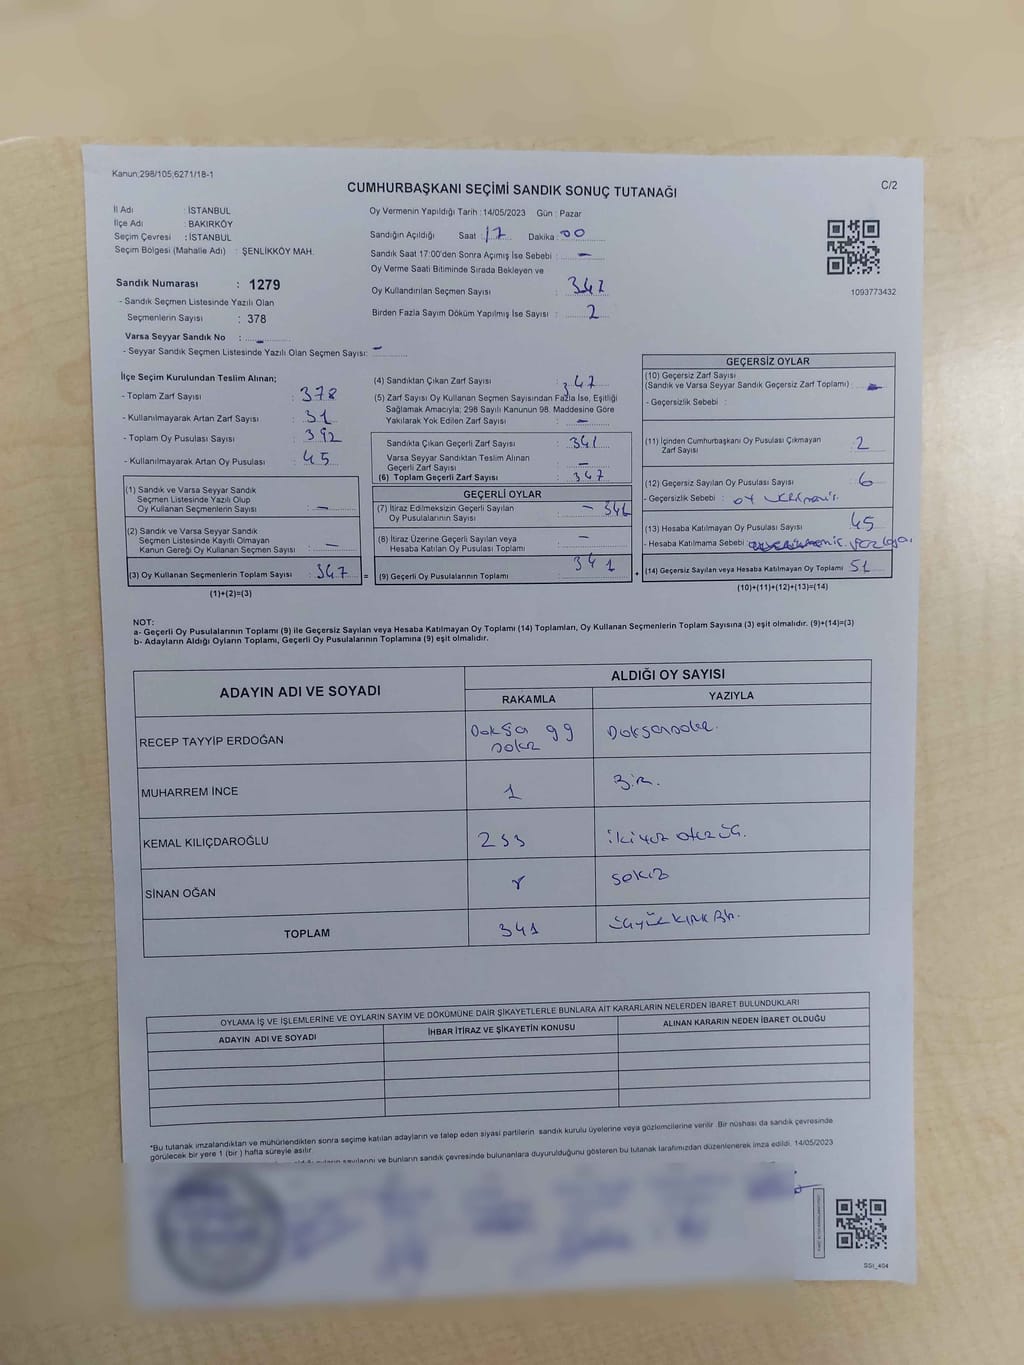 Kanun;298/105;6271/18-1
CUMHURBAŞKANI SEÇİMİ SANDIK SONUÇ TUTANAĞI
C/2
İl Adı : İSTANBUL
İlçe Adı : BAKIRKÖY
Seçim Çevresi : İSTANBUL
Seçim Bölgesi (Mahalle Adı) : ŞENLİKKÖY MAH.
Oy Vermenin Yapıldığı Tarih : 14/05/2023 Gün : Pazar
Sandığın Açıldığı Saat : 17 Dakika : 00
Sandık Saat 17:00'den Sonra Açımış İse Sebebi : —
Oy Verme Saati Bitiminde Sırada Bekleyen ve
Oy Kullandırılan Seçmen Sayısı : 347
Birden Fazla Sayım Döküm Yapılmış İse Sayısı : 2
1093773432
Sandık Numarası : 1279
- Sandık Seçmen Listesinde Yazılı Olan
Seçmenlerin Sayısı : 378
Varsa Seyyar Sandık No : —
- Seyyar Sandık Seçmen Listesinde Yazılı Olan Seçmen Sayısı: —
İlçe Seçim Kurulundan Teslim Alınan;
- Toplam Zarf Sayısı : 378
- Kullanılmayarak Artan Zarf Sayısı : 31
- Toplam Oy Pusulası Sayısı : 392
- Kullanılmayarak Artan Oy Pusulası : 45
(1) Sandık ve Varsa Seyyar Sandık
Seçmen Listesinde Yazılı Olup
Oy Kullanan Seçmenlerin Sayısı : —
(2) Sandık ve Varsa Seyyar Sandık
Seçmen Listesinde Kayıtlı Olmayan
Kanun Gereği Oy Kullanan Seçmen Sayısı : —
(3) Oy Kullanan Seçmenlerin Toplam Sayısı : 347 =
(1)+(2)=(3)
(4) Sandıktan Çıkan Zarf Sayısı : 347
(5) Zarf Sayısı Oy Kullanan Seçmen Sayısından Fazla İse, Eşitliği
Sağlamak Amacıyla; 298 Sayılı Kanunun 98. Maddesine Göre
Yakılarak Yok Edilen Zarf Sayısı : —
Sandıkta Çıkan Geçerli Zarf Sayısı : 341
Varsa Seyyar Sandıktan Teslim Alınan
Geçerli Zarf Sayısı : —
(6) Toplam Geçerli Zarf Sayısı : 347
GEÇERLİ OYLAR
(7) İtiraz Edilmeksizin Geçerli Sayılan
Oy Pusulalarının Sayısı : —
(8) İtiraz Üzerine Geçerli Sayılan veya
Hesaba Katılan Oy Pusulası Toplamı : —
(9) Geçerli Oy Pusulalarının Toplamı : 341 +
GEÇERSİZ OYLAR
(10) Geçersiz Zarf Sayısı
(Sandık ve Varsa Seyyar Sandık Geçersiz Zarf Toplamı) : —
- Geçersizlik Sebebi :
(11) İçinden Cumhurbaşkanı Oy Pusulası Çıkmayan
Zarf Sayısı : 2
(12) Geçersiz Sayılan Oy Pusulası Sayısı : 6
- Geçersizlik Sebebi : oy
(13) Hesaba Katılmayan Oy Pusulası Sayısı : 45
- Hesaba Katılmama Sebebi :
(14) Geçersiz Sayılan veya Hesaba Katılmayan Oy Toplamı : 51
(10)+(11)+(12)+(13)=(14)
NOT:
a- Geçerli Oy Pusulalarının Toplamı (9) ile Geçersiz Sayılan veya Hesaba Katılmayan Oy Toplamı (14) Toplamları, Oy Kullanan Seçmenlerin Toplam Sayısına (3) eşit olmalıdır. (9)+(14)=(3)
b- Adayların Aldığı Oyların Toplamı, Geçerli Oy Pusulalarının Toplamına (9) eşit olmalıdır.
ADAYIN ADI VE SOYADI
ALDIĞI OY SAYISI
RAKAMLA YAZIYLA
RECEP TAYYİP ERDOĞAN 99
MUHARREM İNCE 1 Bir.
KEMAL KILIÇDAROĞLU 233 ikiyüz otuz üç.
SİNAN OĞAN 8 sekiz
TOPLAM 341 üçyüz kırk Bir.
OYLAMA İŞ VE İŞLEMLERİNE VE OYLARIN SAYIM VE DÖKÜMÜNE DAİR ŞİKAYETLERLE BUNLARA AİT KARARLARIN NELERDEN İBARET BULUNDUKLARI
ADAYIN ADI VE SOYADI İHBAR İTİRAZ VE ŞİKAYETİN KONUSU ALINAN KARARIN NEDEN İBARET OLDUĞU
*Bu tutanak imzalandıktan ve mühürlendikten sonra seçime katılan adayların ve talep eden siyasi partilerin sandık kurulu üyelerine veya gözlemcilerine verilir. Bir nüshası da sandık çevresinde
görülecek bir yere 1 (bir ) hafta süreyle asılır
sayılarını ve bunların sandık çevresinde bulunanlara duyurulduğunu gösteren bu tutanak tarafımızdan düzenlenerek imza edildi. 14/05/2023
SSt_404